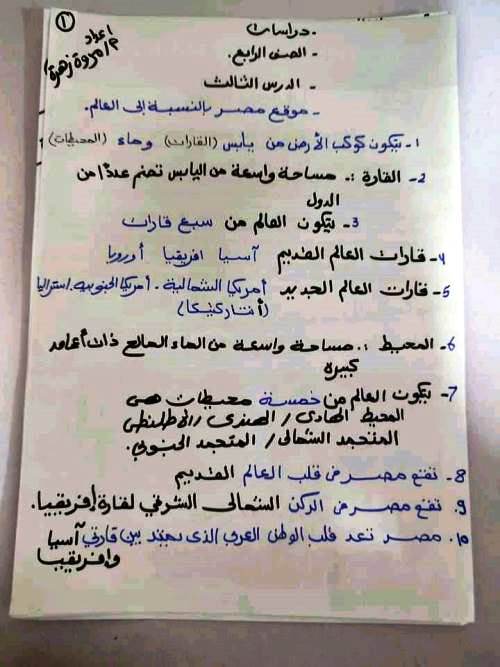 ①
اعداد
م/ مروة زهرة
- دراسات
- الصف الرابع.
- الدرس الثالث
- موقع مصر بالنسبة إلى العالم.
1- يتكون كوكب الأرض من يابس (القارات) وماء (المحيطات)
2- القارة :. مساحة واسعة من اليابس تضم عددًا من
الدول
3- يتكون العالم من سبع قارات
4- قارات العالم القديم آسيا افريقيا أوروبا
5- قارات العالم الجديد أمريكا الشمالية - أمريكا الجنوبية. استراليا
(أنتاركتيكا)
6- المحيط :. مساحة واسعة من الماء المالح ذات أعماق
كبيرة
7- يتكون العالم من خمسة محيطات هى
المحيط الهادى / الهندى / الاطلنطى
المتجمد الشمالى / المتجمد الجنوبى.
8- تقع مصر فى قلب العالم القديم
9. تقع مصر فى الركن الشمالى الشرقي لقارة إفريقيا.
10. مصر تعد قلب الوطن العربي الذى يمتد بين قارتي آسيا
وافريقيا